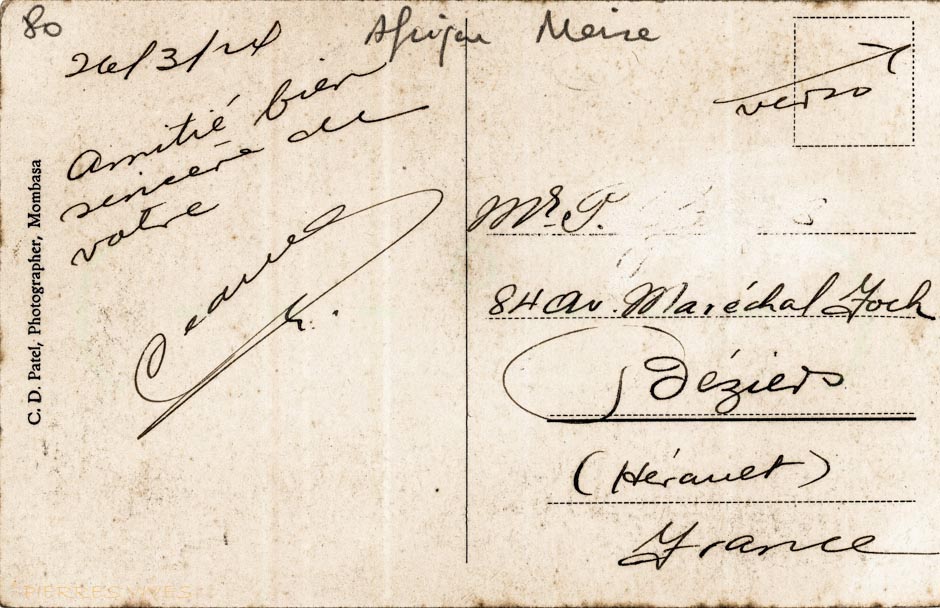 80
26/3/24
Afrique Noire
verso
Amitié bien
sincère de
votre
C. D. Patel, Photographer, Mombasa
Mr. P.
84 av. Maréchal Foch
Béziers
(Hérault)
France
PIERRES VIVES